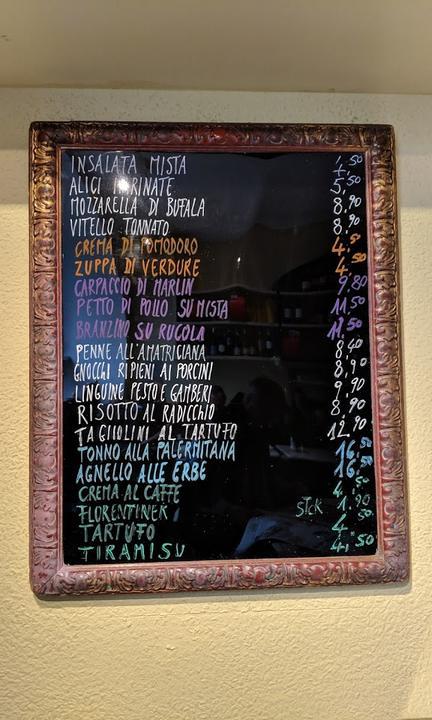 INSALATA MISTA 4,50
ALICI MARINATE 5,50
MOZZARELLA DI BUFALA 8,90
VITELLO TONNATO 8,90
CREMA DI POMODORO 4,50
ZUPPA DI VERDURE 4,50
CARPACCIO DI MARLIN 9,80
PETTO DI POLLO SU MISTA 11,50
BRANZINO SU RUCOLA 11,50
PENNE ALL'AMATRICIANA 8,40
GNOCCHI RIPIENI AI PORCINI 8,90
LINGUINE PESTO E GAMBERI 9,90
RISOTTO AL RADICCHIO 8,90
TAGLIOLINI AL TARTUFO 12,90
TONNO ALLA PALERMITANA 16,50
AGNELLO ALLE ERBE 16,50
CREMA AL CAFFE 4,50
FLORENTINER STCK 1,20
TARTUFO 4,50
TIRAMISU 4,50